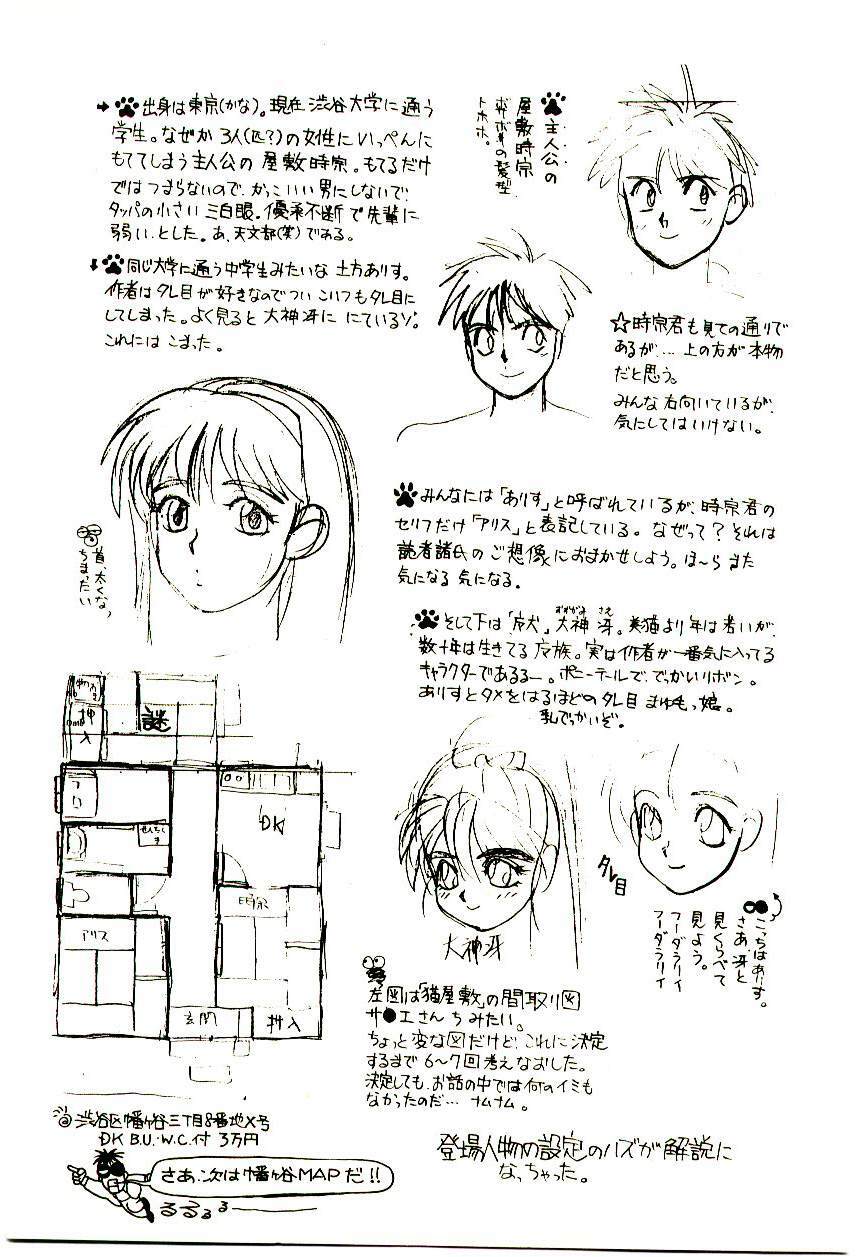 出身は東京(かな)。現在 渋谷大学に通う
学生。なぜか 3人(匹?)の女性に いっぺんに
もててしまう主人公の 屋敷時宗。もてるだけ
ではつまらないので、かっこいい男にしないで、
タッパの小さい 三白眼。優柔不断で先輩に
弱い、とした。あ、天文部(笑)である。
同じ大学に通う中学生みたいな 土方ありす。
作者はタレ目が好きなのでつい こいつもタレ目に
してしまった。よく見ると 大神冴に にているゾ。
これには こまった。
主人公の
屋敷時宗
ボサボサの髪型
トホホ。
☆時宗君も見ての通りで
あるが、… 上の方が本物
だと思う。
みんな右向いているが、
気にしてはいけない。
首、太くな、
ちまったい
みんなには「ありす」と呼ばれているが、時宗君の
セリフだけ「アリス」と表記している。なぜって? それは
読者諸氏のご想像におまかせしよう。ほ〜ら また
気になる 気になる。
そして下は 大神 冴。美猫より年は若いが、
おおがみ さえ
数十年は生きてる 族。実は作者が一番気に入ってる
キャラクターであるるー。ポニーテールで、でっかいリボン。
ありすとタメをはるほどのタレ目 まゆもっ娘。
乳でっかいぞ。
押入
謎
フロ
せんたくき
DK
時宗
アリス
玄関
押入
大神冴
タレ目
こっちはありす。
さあ 冴と
見くらべて
見よう。
フーダラリィ
フーダラリィ
左図は「猫屋敷」の間取り図
サ●エさんちみたい。
ちょっと変な図だけど、これに決定
するまで 6〜7回考えなおした。
決定しても、お話の中では何のイミも
なかったのだ… ナムナム。
渋谷区幡ヶ谷三丁目8番地X号
DK B.U. W.C.付 3万円
さあ、次は幡ヶ谷MAPだ!!
るるるる
登場人物の設定のハズが解説に
なっちゃった。